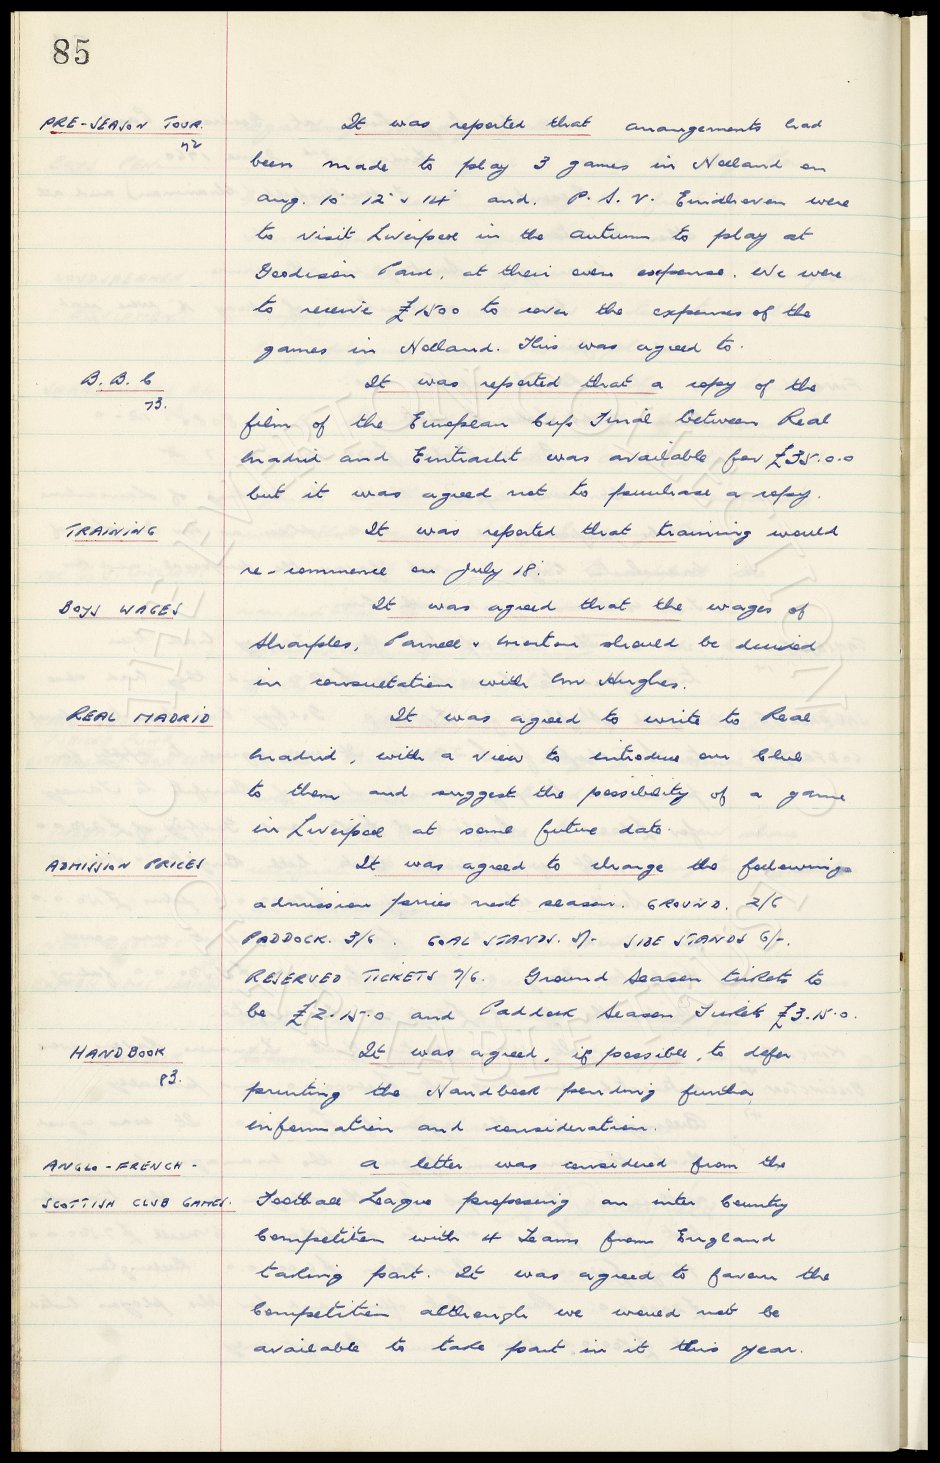 85
PRE-SEASON TOUR. It was reported that arrangements had
72 been made to play 3 games in Holland on
Aug. 10 12 & 14 and. P. S. V. Eindhoven were
to visit Liverpool in the autumn to play at
Goodison Park, at their own expense. We were
to receive £1500 to cover the expenses of the
games in Holland. This was agreed to.
B. B. C It was reported that a copy of the
73. film of the European Cup Final between Real
Madrid and Eintracht was available for £35.0.0
but it was agreed not to purchase a copy.
TRAINING It was reported that training would
re-commence on July 18.
BOYS WAGES It was agreed that the wages of
Sharples, Parnell & Morton should be decided
in consultation with Mr Hughes.
REAL MADRID It was agreed to write to Real
Madrid, with a view to introduce our Club
to them and suggest the possibility of a game
in Liverpool at some future date.
ADMISSION PRICES It was agreed to charge the following
admission prices next season. GROUND. 2/6
PADDOCK. 3/6. GOAL STANDS. 5/- SIDE STANDS 6/-.
RESERVED TICKETS 7/6. Ground Season tickets to
be £2.15.0 and Paddock Season Tickets £3.15.0.
HANDBOOK It was agreed, if possible, to defer
83. printing the Handbook pending further
information and consideration.
ANGLO-FRENCH- A letter was considered from the
SCOTTISH CLUB GAMES. Football League proposing an inter Country
Competition with 4 Teams from England
taking part. It was agreed to favour the
Competition although we would not be
available to take part in it this year.